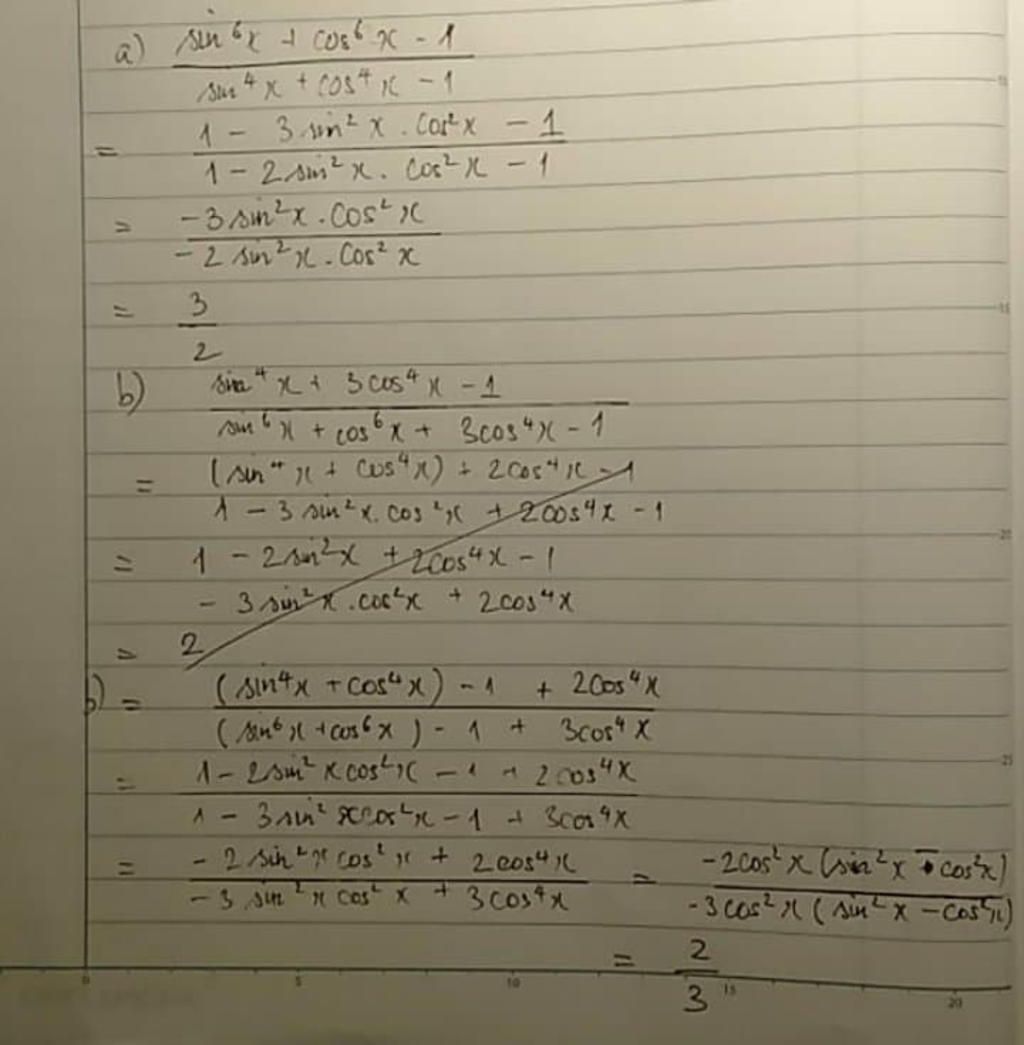 a) sin⁶x + cos⁶x - 1
sin⁴x + cos⁴x - 1
= 1 - 3 sin²x . cos²x - 1
1 - 2 sin²x . cos²x - 1
= -3 sin²x . cos²x
-2 sin²x . cos²x
= 3
2
b) sin⁴x + 3cos⁴x - 1
sin⁶x + cos⁶x + 3cos⁴x - 1
= (sin⁴x + cos⁴x) + 2cos⁴x - 1
1 - 3 sin²x . cos²x + 2cos⁴x - 1
= 1 - 2sin²x + 2cos⁴x - 1
- 3 sin²x . cos²x + 2cos⁴x
= 2
b) = (sin⁴x + cos⁴x) - 1 + 2cos⁴x
(sin⁶x + cos⁶x) - 1 + 3cos⁴x
= 1 - 2sin²x cos²x - 1 + 2cos⁴x
1 - 3sin²x cos²x - 1 + 3cos⁴x
= - 2 sin²x cos²x + 2cos⁴x = -2cos²x (sin²x - cos²x)
- 3 sin²x cos²x + 3cos⁴x -3cos²x (sin²x - cos²x)
= 2
3
0 5 10 15 20